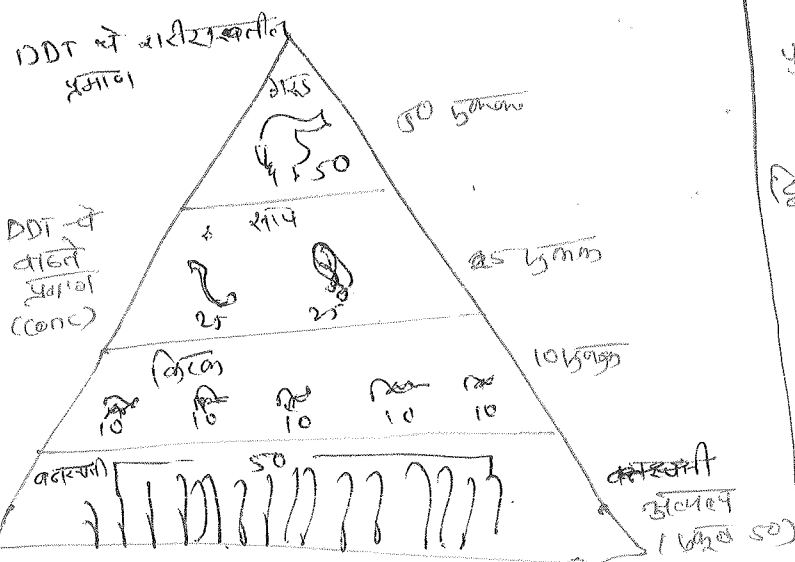 DDT चे शरीरातील
प्रमाण
गरुड
50
50 एकक
DDT चे
वाढते
प्रमाण
(conc)
साप
25 25
25 एकक
किटक
10 10 10 10 10
10 एकक
वनस्पती 50
वनस्पती
अत्यल्प
(एकूण 50)